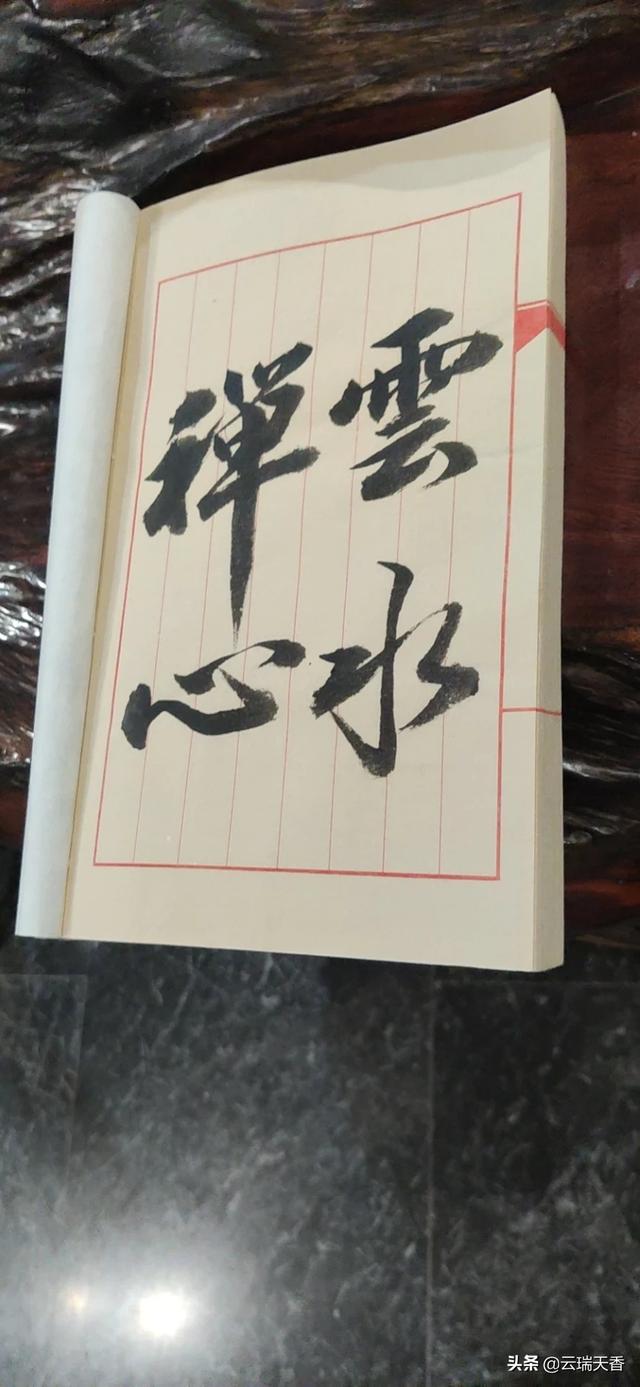 雲水
禅心
头条 @云瑞天香